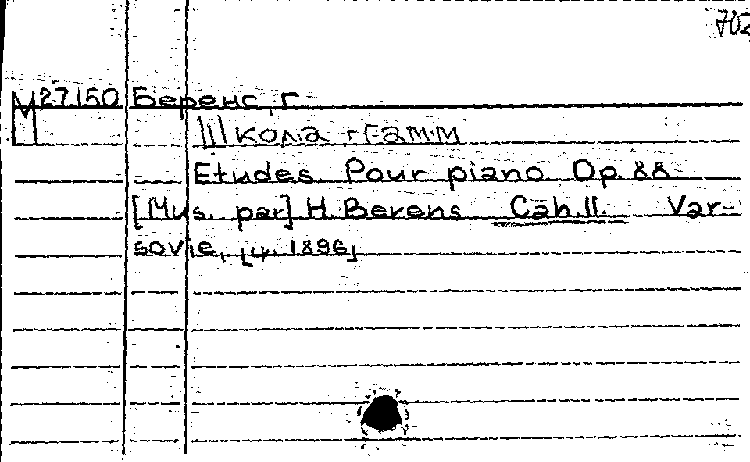 702
М27.150 Беренс, Г.
Школа гамм
Etudes Pour piano Op. 88
[Mus. par] H. Berens Cah. II. Var-
sovie, [ц. 1896]